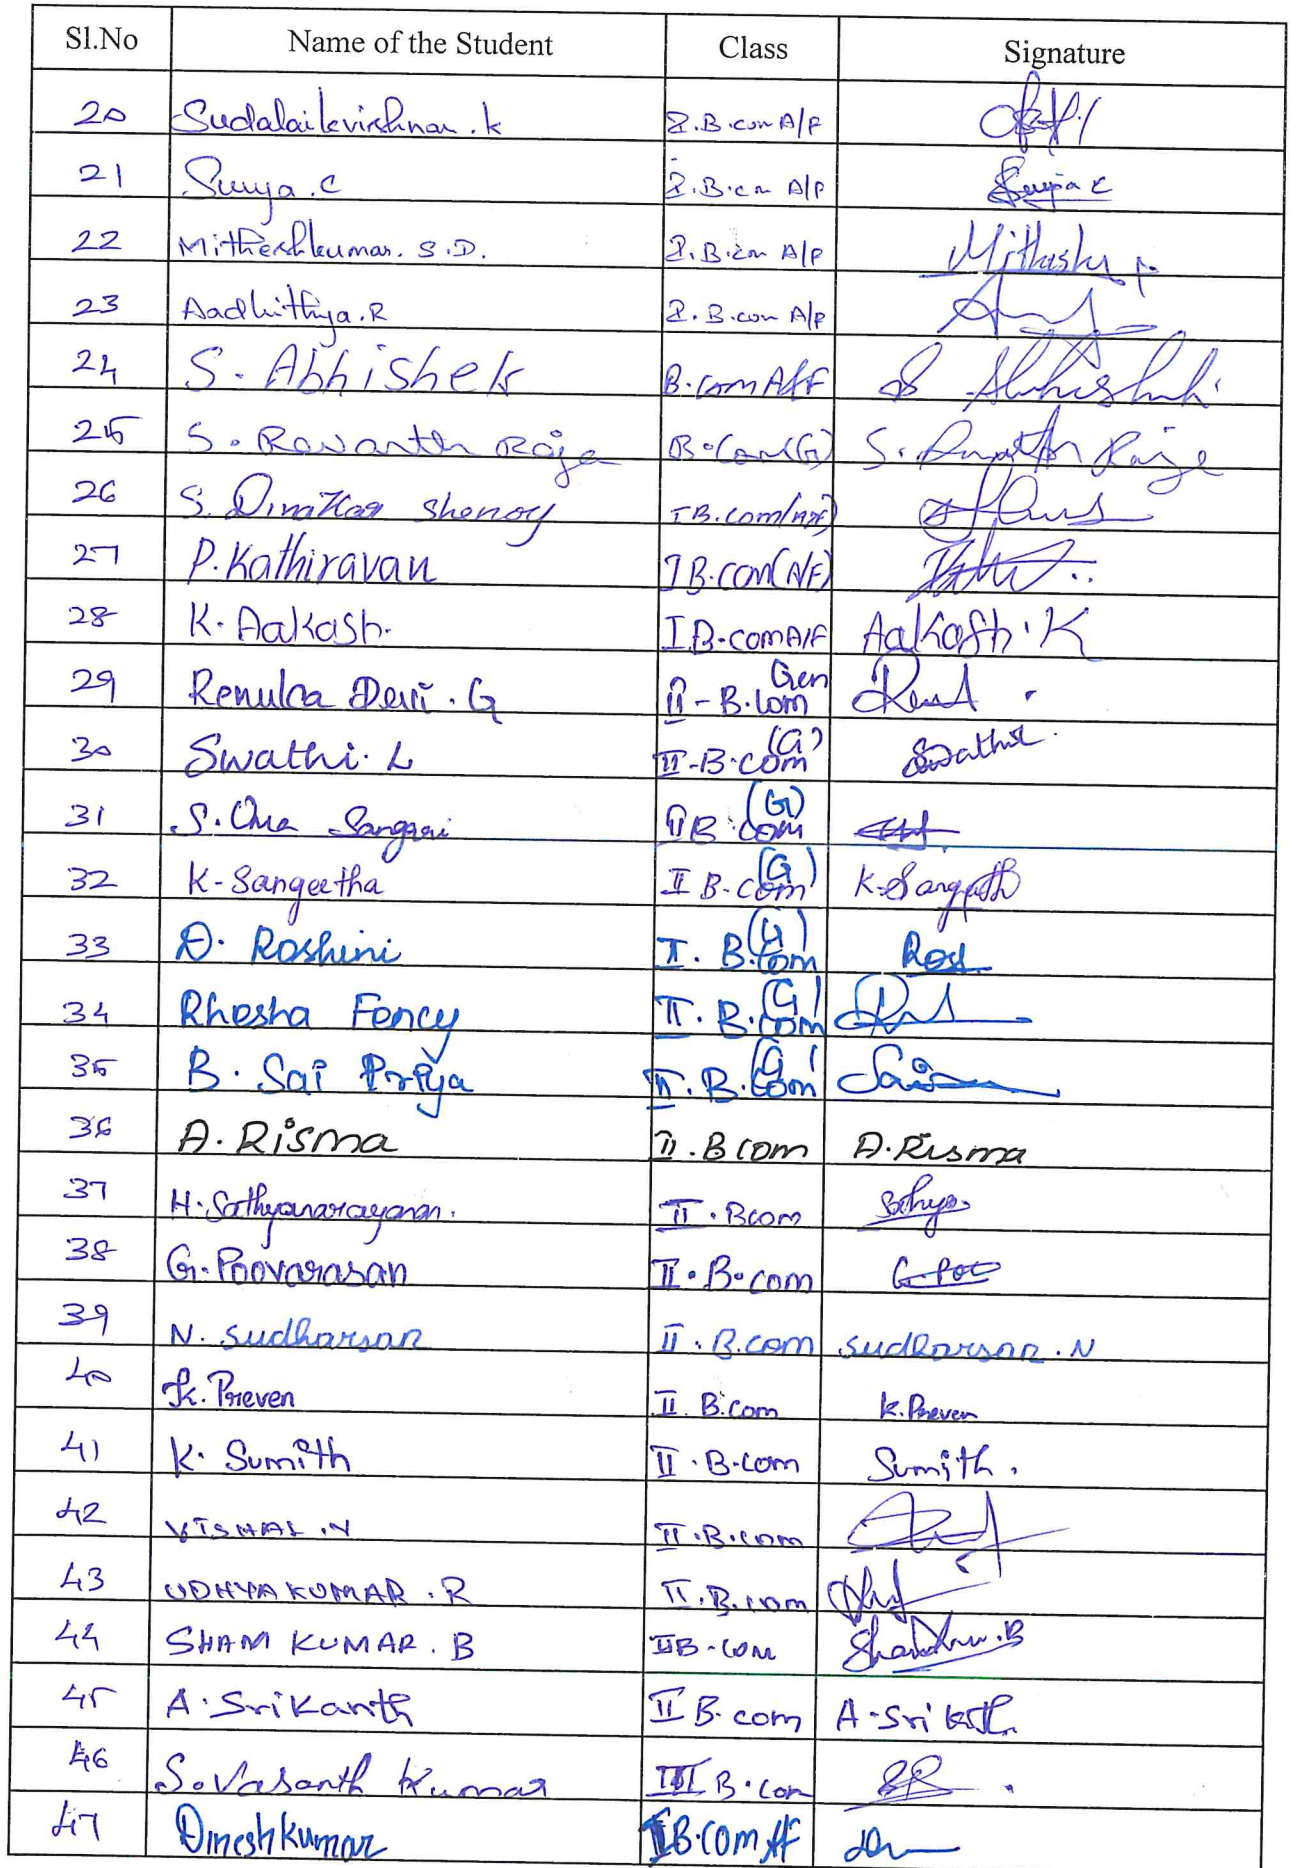 Sl.No Name of the Student Class Signature
20 Sudalaikrishnan.k I.B.com A/F
21 Surya.C I.B.com A/F Surya C
22 Mitheshkumar. S.D. I.B.com A/F Mithesh
23 Aadhithya.R I.B.com A/F
24 S. Abhishek B.com A&F S Abhishek
25 S. Revanth Raja B.Com(G) S. Raja
26 S. Shenoy I B.com(A/F)
27 P. Kathiravan I B.com(A/F)
28 K. Aakash. I B.com A/F Aakash.K
29 Renuka Devi. G II-B.Com Gen
30 Swathi. L II-B.com (G) Swathi
31 S. Uma II B.com (G)
32 K-Sangeetha II B.com (G) K.Sangeetha
33 D. Roshini II. B.com (G) Rosh
34 Rhesha Fency II. B.com (G)
35 B. Sai Priya II. B.com (G) Sai
36 A. Risma II. B com A. Risma
37 H. Sathyanarayanan. II. Bcom Sathya
38 G. Poovarasan II. B.com G. Poo
39 N. Sudharsan II. B.com Sudharsan. N
40 K. Preven II. B.com K. Preven
41 K. Sumith II. B.com Sumith.
42 VISHAL .N II.B.com
43 UDHYAKUMAR . R II.B.com
44 SHAM KUMAR. B II B.com
45 A. Srikanth II B. com A. Srikanth
46 S. Vasanth Kumar III B.com
47 Dineshkumar I B.COM AF